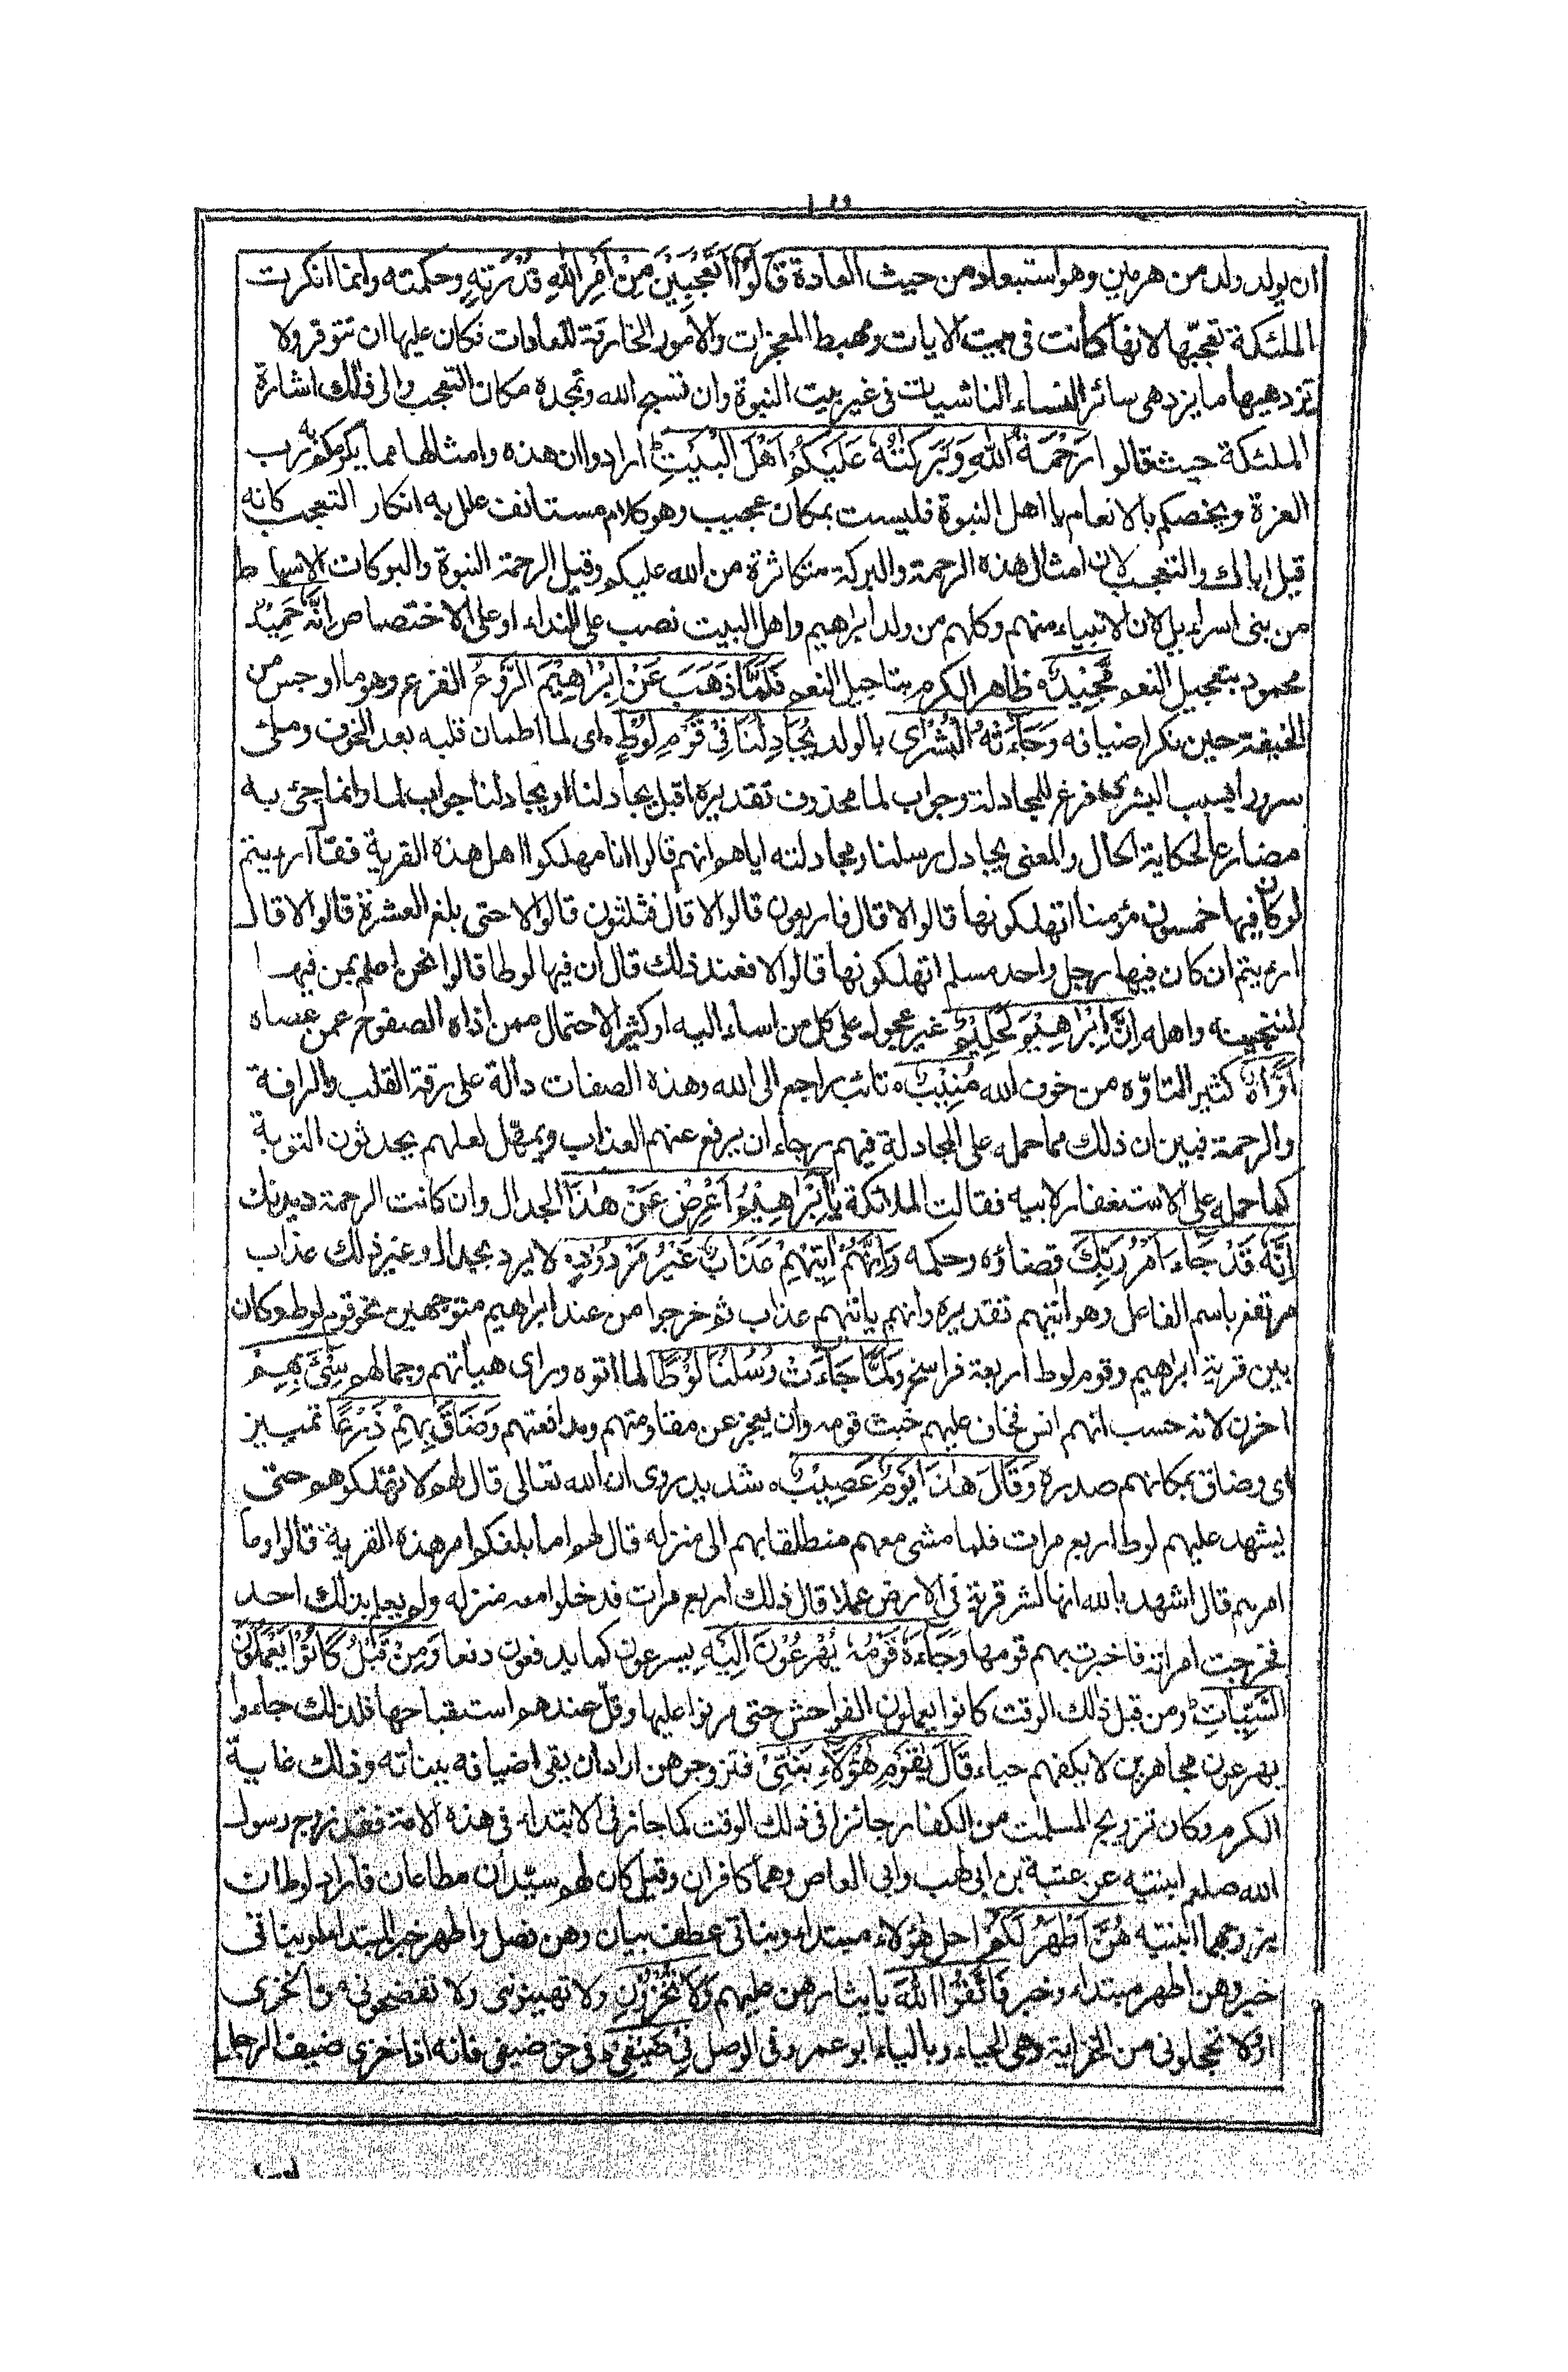 ان يولد ولد من هرمين وهو استبعاد من حيث العادة قَالُوْٓا اَتَعْجَبِيْنَ مِنْ اَمْرِ اللّٰهِ قدرته وحكمته وانما انكرت
الملئكة تعجبها لانها كانت فى بيت الايات ومهبط المعجزات والامور الخارقة للعادات فكان عليها ان تتوقر ولا
يزدهيها ما يزدهى سائر النساء الناشيات فى غير بيت النبوة وان تسبح الله وتمجده مكان التعجب والى ذلك اشارة
الملئكة حيث قالوا رَحْمَةُ اللّٰهِ وَبَرَكٰتُهٗ عَلَيْكُمْ اَهْلَ الْبَيْتِ ارادوا ان هذه وامثالها مما يكرمكم به رب
العزة ويخصكم بالانعام يا اهل النبوة فليست بمكان عجيب وهو كلام مستانف علل به انكار التعجب كانه
قيل اياك والتعجب لان امثال هذه الرحمة والبركة متكاثرة من الله عليكم وقيل الرحمة النبوة والبركات الاسباط
من بنى اسرائيل لان الانبياء منهم وكلهم من ولد ابراهيم واهل البيت نصب على النداء او على الاختصاص اِنَّهٗ حَمِيْدٌ
محمود بتعجيل النعم مَّجِيْدٌ ظاهر الكرم بتاجيل النعم فَلَمَّا ذَهَبَ عَنْ اِبْرٰهِيْمَ الرَّوْعُ الفزع وهو ما اوجس من
الخيفة حين نكر اضيافه وَجَآءَتْهُ الْبُشْرٰى بالولد يُجَادِلُنَا فِيْ قَوْمِ لُوْطٍ اى لما اطمان قلبه بعد الخوف وملئ
سرورا بسبب البشرى فرغ للمجادلة وجواب لما محذوف تقديره اقبل يجادلنا او يجادلنا جواب لما وانما جئ به
مضارعا لحكاية الحال والمعنى يجادل رسلنا ومجادلته اياهم انهم قالوا انا مهلكوا اهل هذه القرية فقال ارءيتم
لو كان فيها خمسون مؤمنا اتهلكونها قالوا لا قال فاربعون قالوا لا قال فثلثون قالوا لا حتى بلغ العشرة قالوا لا قال
ارءيتم ان كان فيها رجل واحد مسلم اتهلكونها قالوا لا فعند ذلك قال ان فيها لوطا قالوا نحن اعلم بمن فيها
لننجينه واهله اِنَّ اِبْرٰهِيْمَ لَحَلِيْمٌ غير عجول على كل من اساء اليه او كثير الاحتمال ممن اذاه الصفوح عمن عصاه
اَوَّاهٌ كثير التاوّه من خوف الله مُّنِيْبٌ تائب راجع الى الله وهذه الصفات دالة على رقة القلب والرافة
والرحمة فبين ان ذلك مما حمله على المجادلة فيهم رجاء ان يرفع عنهم العذاب ويمهّل لعلهم يحدثون التوبة
كما حمله على الاستغفار لابيه فقالت الملائكة يٰٓاِبْرٰهِيْمُ اَعْرِضْ عَنْ هٰذَا الجدال وان كانت الرحمة ديدنك
اِنَّهٗ قَدْ جَآءَ اَمْرُ رَبِّكَ قضاؤه وحكمه وَاِنَّهُمْ اٰتِيْهِمْ عَذَابٌ غَيْرُ مَرْدُوْدٍ لا يرد بجدال وغير ذلك عذاب
مرتفع باسم الفاعل وهو اتيهم تقديره وانهم ياتيهم عذاب ثم خرجوا من عند ابراهيم متوجهين نحو قوم لوط وكان
بين قرية ابراهيم وقوم لوط اربعة فراسخ وَلَمَّا جَآءَتْ رُسُلُنَا لُوْطًا لما اتوه وراى هياتهم وجمالهم سِيْٓءَ بِهِمْ
احزن لانه حسب انهم انس فخاف عليهم خبث قومه وان يعجز عن مقاومتهم ومدافعتهم وَضَاقَ بِهِمْ ذَرْعًا تمييز
اى وضاق بمكانهم صدره وَقَالَ هٰذَا يَوْمٌ عَصِيْبٌ شديد روى ان الله تعالى قال لهم لا تهلكوهم حتى
يشهد عليهم لوط اربع مرات فلما مشى معهم منطلقا بهم الى منزله قال لهم اما بلغكم امر هذه القرية قالوا وما
امرهم قال اشهد بالله انها لشر قرية فى الارض عملا قال ذلك اربع مرات فدخلوا معه منزله ولم يعلم بذلك احد
فخرجت امراته فاخبرت بهم قومها وَجَآءَهٗ قَوْمُهٗ يُهْرَعُوْنَ اِلَيْهِ يسرعون كما يدفعون دفعا وَمِنْ قَبْلُ كَانُوْا يَعْمَلُوْنَ
السَّيِّاٰتِ ومن قبل ذلك الوقت كانوا يعملون الفواحش حتى مرنوا عليها وقل عندهم استقباحها فلذلك جاءوا
يهرعون مجاهرين لا يكفهم حياء قَالَ يٰقَوْمِ هٰٓؤُلَآءِ بَنٰتِيْ فتزوجوهن اراد ان يقى اضيافه ببناته وذلك غاية
الكرم وكان تزويج المسلمت من الكفار جائزا فى ذلك الوقت كما جاز فى الابتداء فى هذه الامة فقد زوج رسول
الله صلعم ابنتيه عن عتبة بن ابى لهب وابى العاص وهما كافران وقيل كان لهم سيّدان مطاعان فاراد لوط ان
يزوجهما ابنتيه هُنَّ اَطْهَرُ لَكُمْ احل هؤلاء مبتداء وبناتى عطف بيان وهن فصل واطهر خبر المبتداء او بناتى
خبر وهن اطهر مبتداء وخبر فَاتَّقُوا اللّٰهَ بايثارهن عليهم وَلَا تُخْزُوْنِ ولا تهينونى ولا تفضحونى من الخزى
او لا تخجلونى من الخزاية وهى الحياء وبالياء ابو عمرو فى الوصل فِيْ ضَيْفِيْ فى حق ضيفى فانه اذا خزى ضيف الرجل